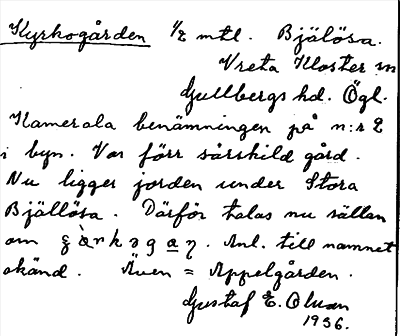 Kyrkogården 1/2 mtl. Bjälösa.
Vreta Kloster sn
Gullbergs hd. Ögl.
Kamerala benämningen på n:r 2
i byn. Var förr särskild gård.
Nu ligger jorden under Stora
Bjällösa. Därför talas nu sällan
om Anl. till namnet
okänd. Även = Appelgården.
Gustaf E. Olsson
1936.